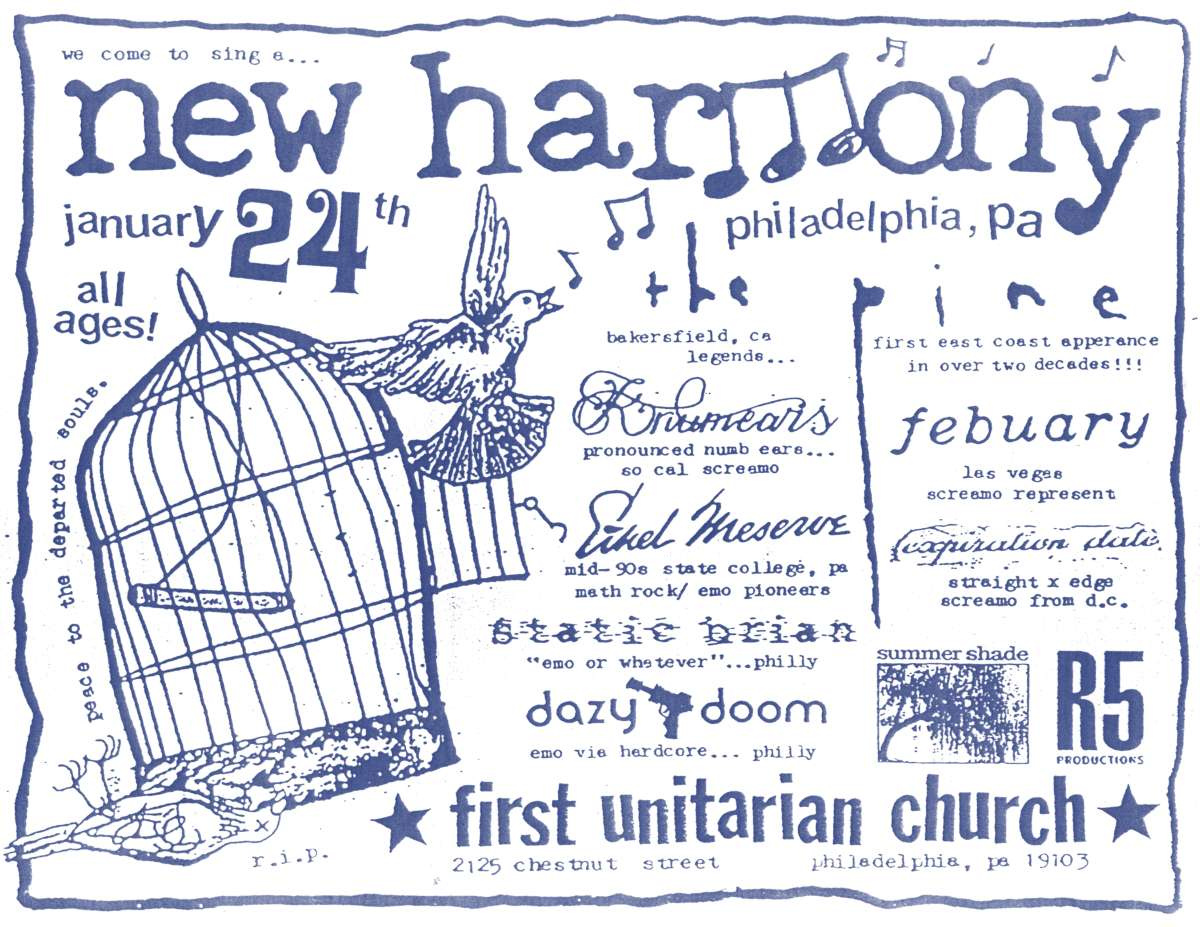 we come to sing a...
new harmony
january 24th
philadelphia, pa
all
ages!
the pine
bakersfield, ca
legends...
first east coast apperance
in over two decades!!!
Knumears
pronounced numb ears...
so cal screamo
febuary
las vegas
screamo represent
Ethel Meserve
mid-90s state college, pa
math rock/ emo pioneers
expiration date.
straight x edge
screamo from d.c.
static brian
"emo or whatever"...philly
dazy doom
emo via hardcore... philly
summer shade
R5
PRODUCTIONS
peace to the departed souls.
r.i.p.
first unitarian church
2125 chestnut street philadelphia, pa 19103